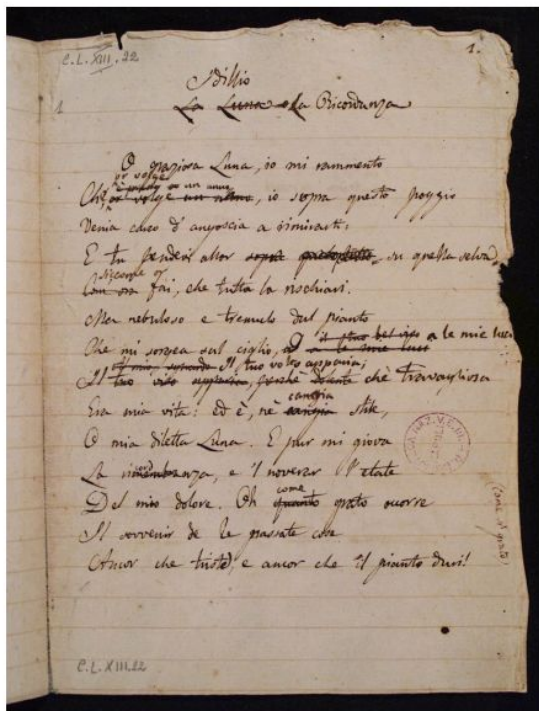 C.L.XIII.22
1.
1
Idillio
La Luna o La Ricordanza
O graziosa Luna, io mi rammento
or volge
Che, or volge un anno, io sopra questo poggio
Venia carco d'angoscia a rimirarti:
E tu pendevi allor su quella selva,
Siccome or
Com'ora fai, che tutta la rischiari.
Ma nebuloso e tremulo dal pianto
Che mi sorgea sul ciglio, a le mie luci
il tuo volto apparia,
Il tuo viso apparia, perchè dolente chè travagliosa
cangia
Era mia vita: ed è, nè cangia stile,
O mia diletta Luna. E pur mi giova
La ricordanza, e 'l noverar l'etate
come
Del mio dolore. Oh quanto grato occorre
Il sovvenir de le passate cose
Ancor che triste, e ancor che il pianto duri!
(come sì grato)
C.L.XIII.22